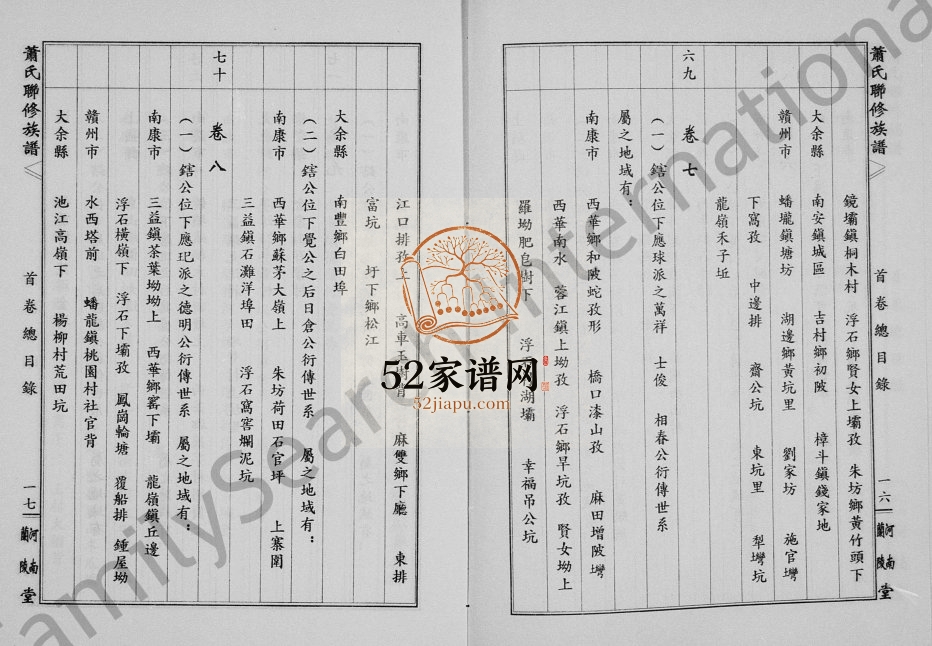 蕭氏聯修族譜
首卷總目錄
一六
河南
蘭陵
堂
鏡壩鎮桐木村 浮石鄉賢女上壩孜 朱坊鄉黃竹頭下
大余縣 南安鎮城區 吉村鄉初陂 樟斗鎮錢家地
贛州市 蟠壠鎮塘坊 湖邊鄉黃坑里 劉家坊 施官塆
下窩孜 中邊排 齋公坑 東坑里 犁塆坑
龍嶺禾子坵
六九
卷七
(一)鎋公位下應球派之萬祥 士俊 相春公衍傳世系
屬之地域有：
南康市 西華鄉和陂蛇孜形 橋口漆山孜 麻田增陂塆
西華南水 蓉江鎮上坳孜 浮石鄉旱坑孜 賢女坳上
羅坳肥皂樹下 浮 湖壩 幸福吊公坑
江口排孜上 高車玉 背 麻雙鄉下廳 東排
富坑 圩下鄉松江
大余縣 南豐鄉白田埠
(二)鎋公位下覺公之后日倉公衍傳世系 屬之地域有：
南康市 西華鄉蘇茅大嶺上 朱坊荷田石官坪 上寨圍
三益鎮石灘洋埠田 浮石窩窖爛泥坑
七十
卷八
(一)鎋公位下應玘派之德明公衍傳世系 屬之地域有：
南康市 三益鎮茶葉坳坳上 西華鄉窰下壩 龍嶺鎮丘邊
浮石橫嶺下 浮石下壩孜 鳳崗輪塘 覆船排 鍾屋坳
贛州市 水西塔前 蟠龍鎮桃園村社官背
大余縣 池江高嶺下 楊柳村荒田坑
蕭氏聯修族譜
首卷總目錄
一七
河南
蘭陵
堂
52家谱网
52jiapu.com
FamilySearch International